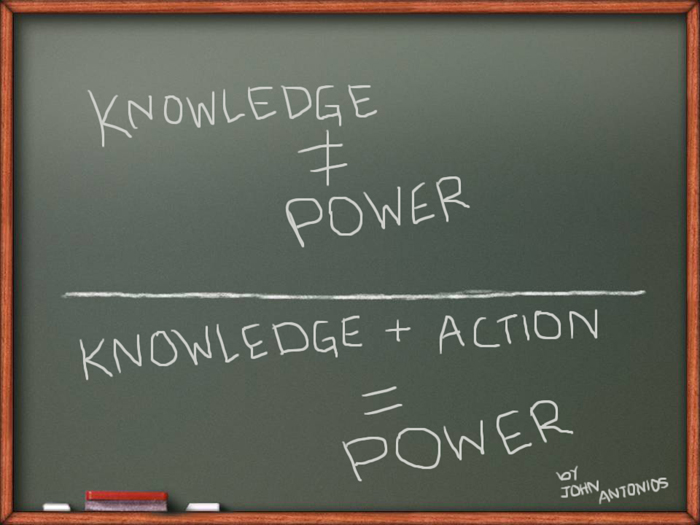 KNOWLEDGE
≠
POWER
KNOWLEDGE + ACTION
=
POWER
by
JOHN ANTONIOS